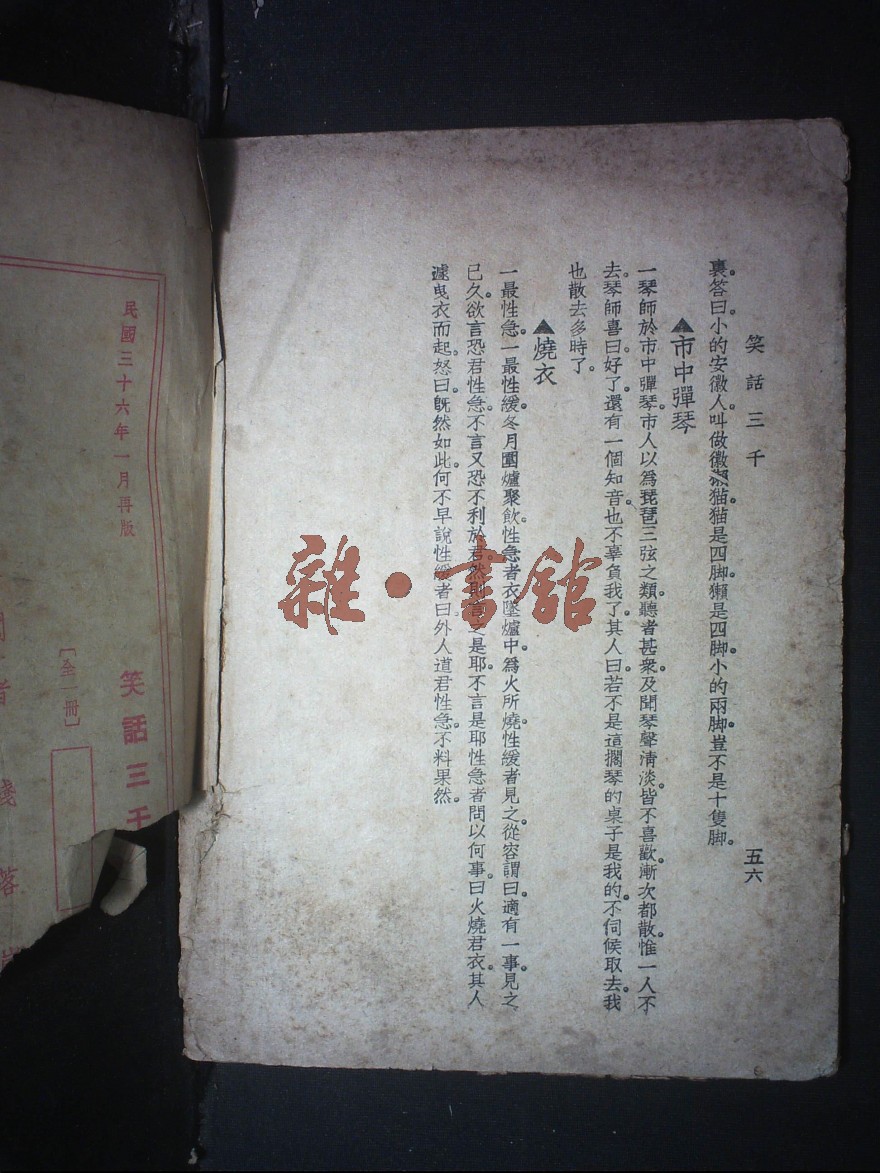 笑話三千
五六
裏。答曰。小的安徽人。叫做徽獺猫。猫是四脚。獺是四脚。小的兩脚。豈不是十隻脚。
▲市中彈琴
一琴師於市中彈琴。市人以爲琵琶三弦之類。聽者甚衆。及聞琴聲淸淡。皆不喜歡。漸次都散。惟一人不
去。琴師喜曰。好了。還有一個知音。也不辜負我了。其人曰。若不是這擱琴的桌子是我的。不伺候取去。我
也散去多時了。
▲燒衣
一最性急。一最性緩。冬月圍爐聚飮。性急者衣墜爐中。爲火所燒。性緩者見之。從容謂曰。適有一事。見之
已久。欲言恐君性急。不言又恐不利於君。然則言之是耶。不言是耶。性急者問以何事。曰火燒君衣。其人
遽曳衣而起。怒曰。旣然如此。何不早說。性緩者曰。外人道君性急。不料果然。
民國三十六年一月再版
笑話三千
〔全一冊〕
者
雜·書館